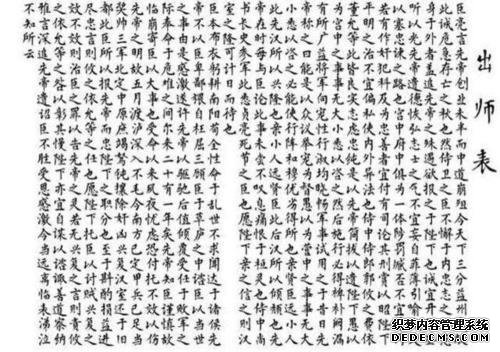 出师表
臣亮言先帝创业未半而中道崩殂今天下三分益州
此诚危急存亡之秋也然侍卫之臣不懈于内忠志之
身于外者盖追先帝之殊遇欲报之于陛下也诚宜开
听以光先帝遗德恢弘志士之气不宜妄自菲薄引喻
以塞忠谏之路也宫中府中俱为一体陟罚臧否不宜
若有作奸犯科及为忠善者宜付有司论其刑赏以昭陛下
平明之治不宜偏私使内外异法也侍中侍郎郭攸之费依
董允等此皆良实志虑忠纯是以先帝简拔以遗陛下愚以
为宫中之事事无大小悉以咨之然后施行必得裨补阙漏
有所广益将军向宠性行淑均晓畅军事试用之于昔日先
帝称之曰能是以众议举宠为督愚以为营中之事
小悉以咨之必能使行阵和穆优劣得所也亲贤臣远小人
此先汉所以兴隆也亲小人远贤臣此后汉所以倾颓也先
帝在时每与臣论此事未尝不叹息痛恨于桓灵也侍中尚
书长史参军此悉贞亮死节之臣也愿陛下亲之信之则汉
室之隆可计日而待也
臣本布衣躬耕南阳苟全性命于乱世不求闻达于诸侯先
帝不以臣卑鄙猥自枉屈三顾臣于草庐之中谘臣以当世
之事由是感激遂许先帝以驱驰后值倾覆受任于败军之
际奉命于危难之间尔来二十有一年矣先帝知臣谨慎故
临崩寄臣以大事也受命以来夙夜忧虑恐付托不效以伤
先帝之明故五月渡泸深入不毛今南方已定甲兵已足当
奖帅三军北定中原庶竭驽钝攘除奸凶兴复汉室还于旧
都此臣所以报先帝而忠陛下之职分也至于斟酌损益进
尽忠言则攸之依允等之任也愿陛下托臣以讨贼兴复之
效不效则治臣之罪以告先帝之灵若无兴复之言则责攸
之依允等之咎以彰其慢陛下亦宜自谋以谘诹善道察纳
雅言深追先帝遗诏臣不胜受恩感激今当远离临表涕泣
不知所云
织梦内容管理系统
DEDECMS.COM